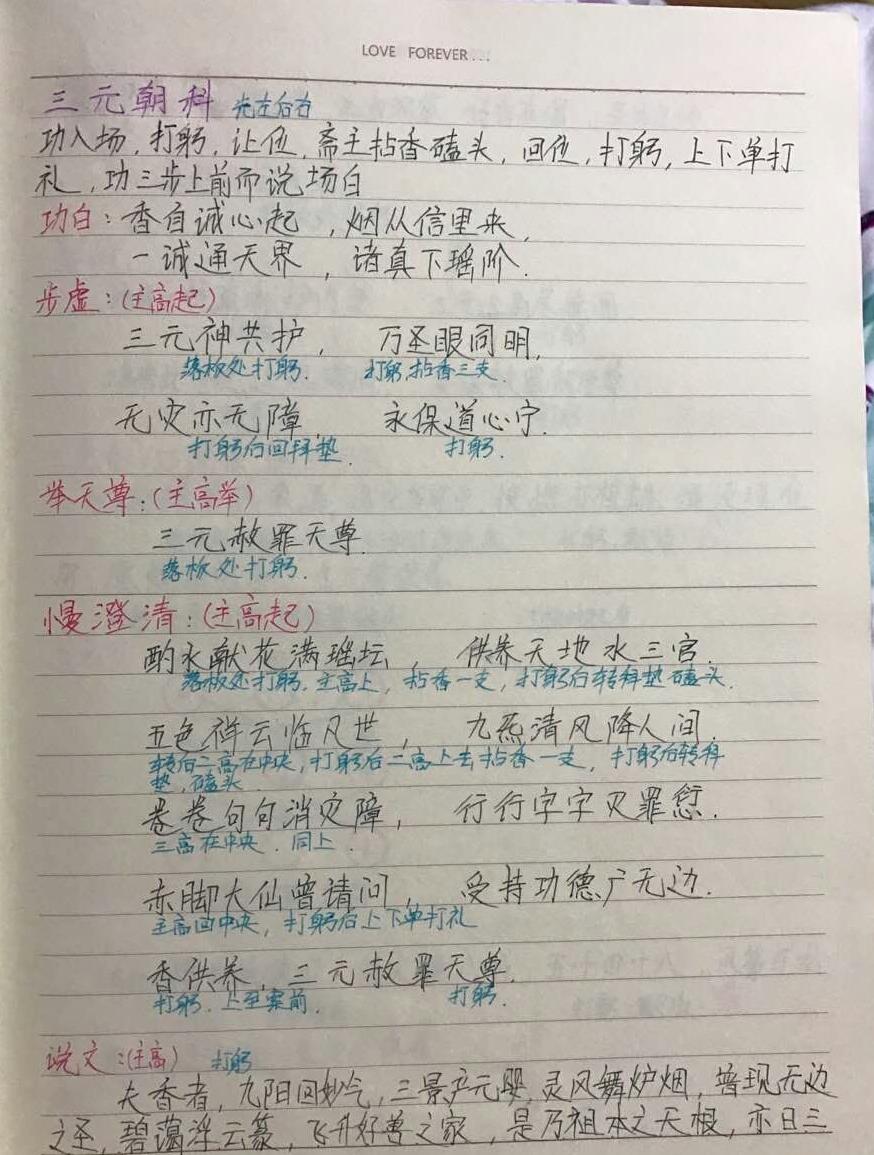 LOVE FOREVER...
三元朝科 先左后右
功入场，打躬，让位，斋主拈香磕头，回位，打躬，上下单打
礼，功三步上前而说场白
功白：香自诚心起，烟从信里来，
一诚通天界，诸真下瑶阶.
步虚：(主高起)
三元神共护， 万圣眼同明，
落板处打躬. 打躬，拈香三支.
无灾亦无障， 永保道心宁.
打躬后回拜垫. 打躬.
举天尊：(主高举)
三元赦罪天尊.
落板处打躬.
慢澄清：(主高起)
酌水献花满瑶坛， 供养天地水三官.
落板处打躬. 主高上，拈香一支，打躬后转拜垫磕头.
五色祥云临凡世， 九炁清风降人间.
转后二高在中央，打躬后二高上去拈香一支，打躬后转拜
垫，磕头.
卷卷句句消灾障， 行行字字灭罪愆.
三高在中央. 同上.
赤脚大仙曾请问， 受持功德广无边.
主高回中央，打躬后上下单打礼
香供养，三元赦罪天尊.
打躬. 上至案前. 打躬.
说文：(主高) 打躬
夫香者，九阳回妙气，三景产元婴，灵风舞炉烟，普现无边
之圣，碧蔼浮云篆，飞升好善之家，是乃祖本之天根，亦曰三